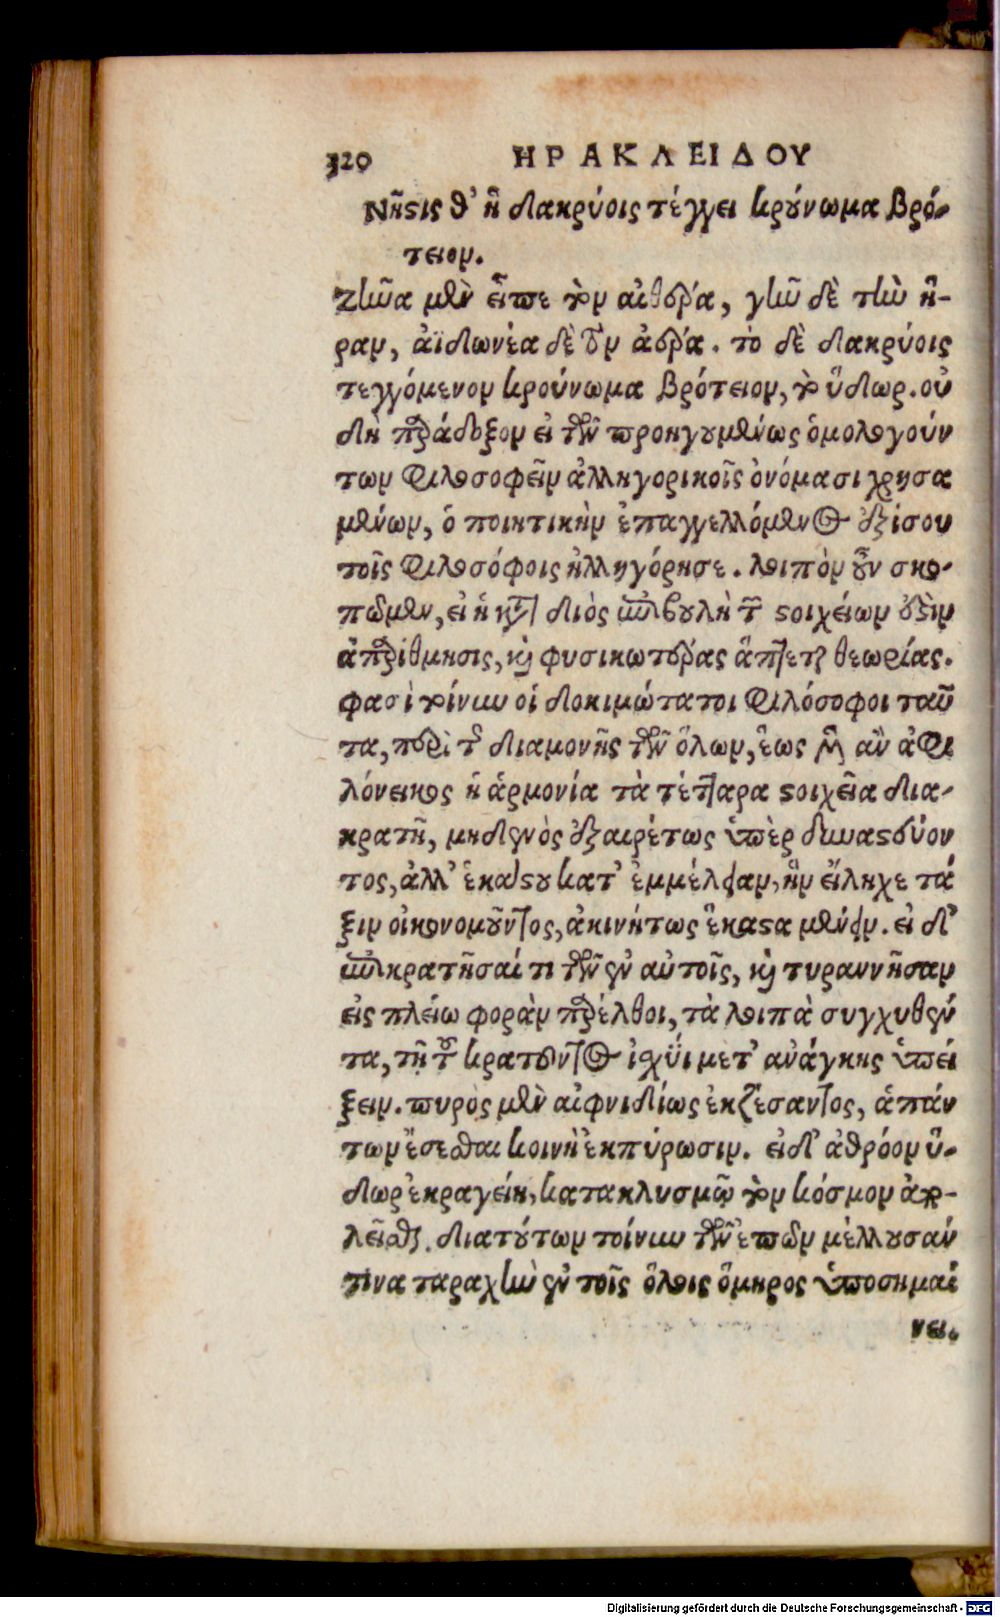 320 ΗΡΑΚΛΕΙΔΟΥ
Νῆστις θ' ἣ δακρύοις τέγγει κρούνωμα βρό-
τειον.
Ζῆνα μὲν εἶπε τὸν αἰθέρα, γῆν δὲ τὴν ἥ-
ραν, ἀϊδωνέα δὲ τὸν ἀέρα. τὸ δὲ δακρύοις
τεγγόμενον κρούνωμα βρότειον, τὸ ὕδωρ. οὐ
δὴ παράδοξον εἰ τῶν προηγουμένως ὁμολογούν
των φιλοσοφεῖν ἀλληγορικοῖς ὀνόμασι χρησα
μένων, ὁ ποιητικὴν ἐπαγγελλόμενος ἐξίσου
τοῖς φιλοσόφοις ἠλληγόρησε. λοιπὸν οὖν σκο-
πῶμεν, εἰ ἡ κατὰ διὸς ἐπιβουλὴ τῶν στοιχείων ἐστὶν
ἀπαρίθμησις, καὶ φυσικωτέρας ἅπτεται θεωρίας.
φασὶ τοίνυν οἱ δοκιμώτατοι φιλόσοφοι ταῦ
τα, περὶ τῆς διαμονῆς τῶν ὅλων, ἕως μὲν ἂν ἀφι
λόνεικος ἡ ἁρμονία τὰ τέτταρα στοιχεῖα δια-
κρατῇ, μηδενὸς ἐξαιρέτως ὑπὲρ δυναστεύον
τος, ἀλλ' ἑκάστου κατ' ἐμμέλειαν, ἣν εἴληχε τά
ξιν οἰκονομοῦντος, ἀκινήτως ἕκαστα μένειν. εἰ δ'
ἐπικρατῆσαί τι τῶν ἐν αὐτοῖς, καὶ τυραννῆσαν
εἰς πλείω φορὰν παρέλθοι, τὰ λοιπὰ συγχυθέν
τα, τῇ τοῦ κρατοῦντος ἰσχύϊ μετ' ἀνάγκης ὑπεί
ξειν. πυρὸς μὲν αἰφνιδίως ἐκζέσαντος, ἁπάν
των ἔσεσθαι κοινὴ ἐκπύρωσιν. εἰ δ' ἀθρόον ὕ-
δωρ ἐκραγείη, κατακλυσμῷ τὸν κόσμον ἀπο-
λεῖσθαι. διατούτων τοίνυν τῶν ἐπῶν μέλλουσάν
τινα ταραχὴν ἐν τοῖς ὅλοις ὅμηρος ὑποσημαί
νει.
Digitalisierung gefördert durch die Deutsche Forschungsgemeinschaft - DFG